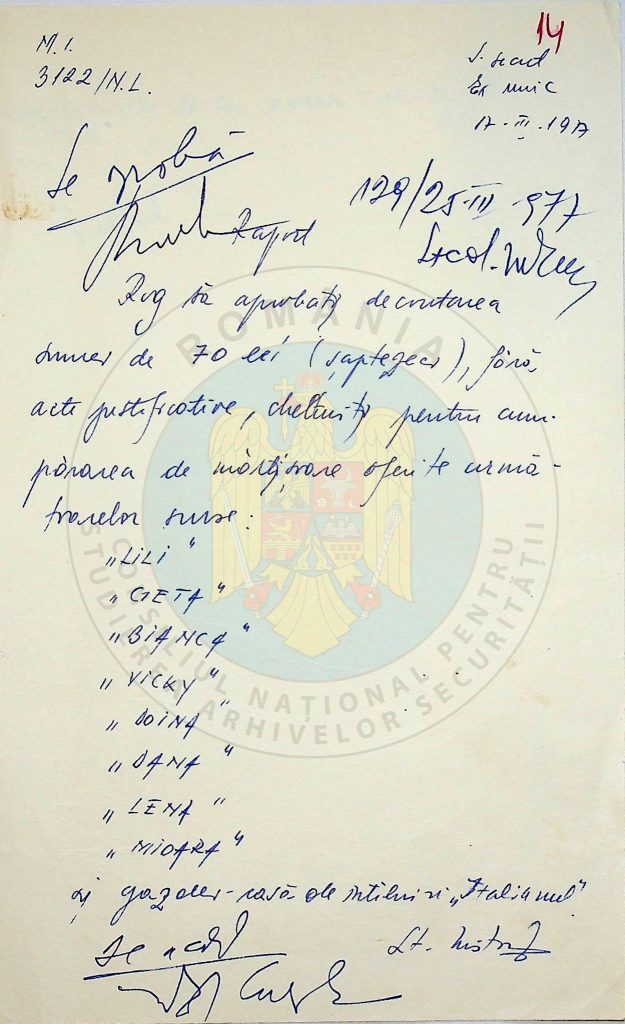 14
M.I.
3122/N.L.
S. secret
Ex unic
17.III.1977
Se aprobă
129/25 III 977
Lt. col.
Raport
Rog să aprobați decontarea
sumei de 70 lei (șaptezeci), fără
acte justificative, cheltuiți pentru cum-
părarea de mărțișoare oferite urmă-
toarelor surse:
„LILI"
„GETA"
„BIANCA"
„VICKY"
„DOINA"
„DANA"
„LENA"
„MIOARA"
și gazdei - casă de întîlniri „Italianul"
Lt.
ROMÂNIA
CONSILIUL NAȚIONAL PENTRU
STUDIEREA ARHIVELOR SECURITĂȚII